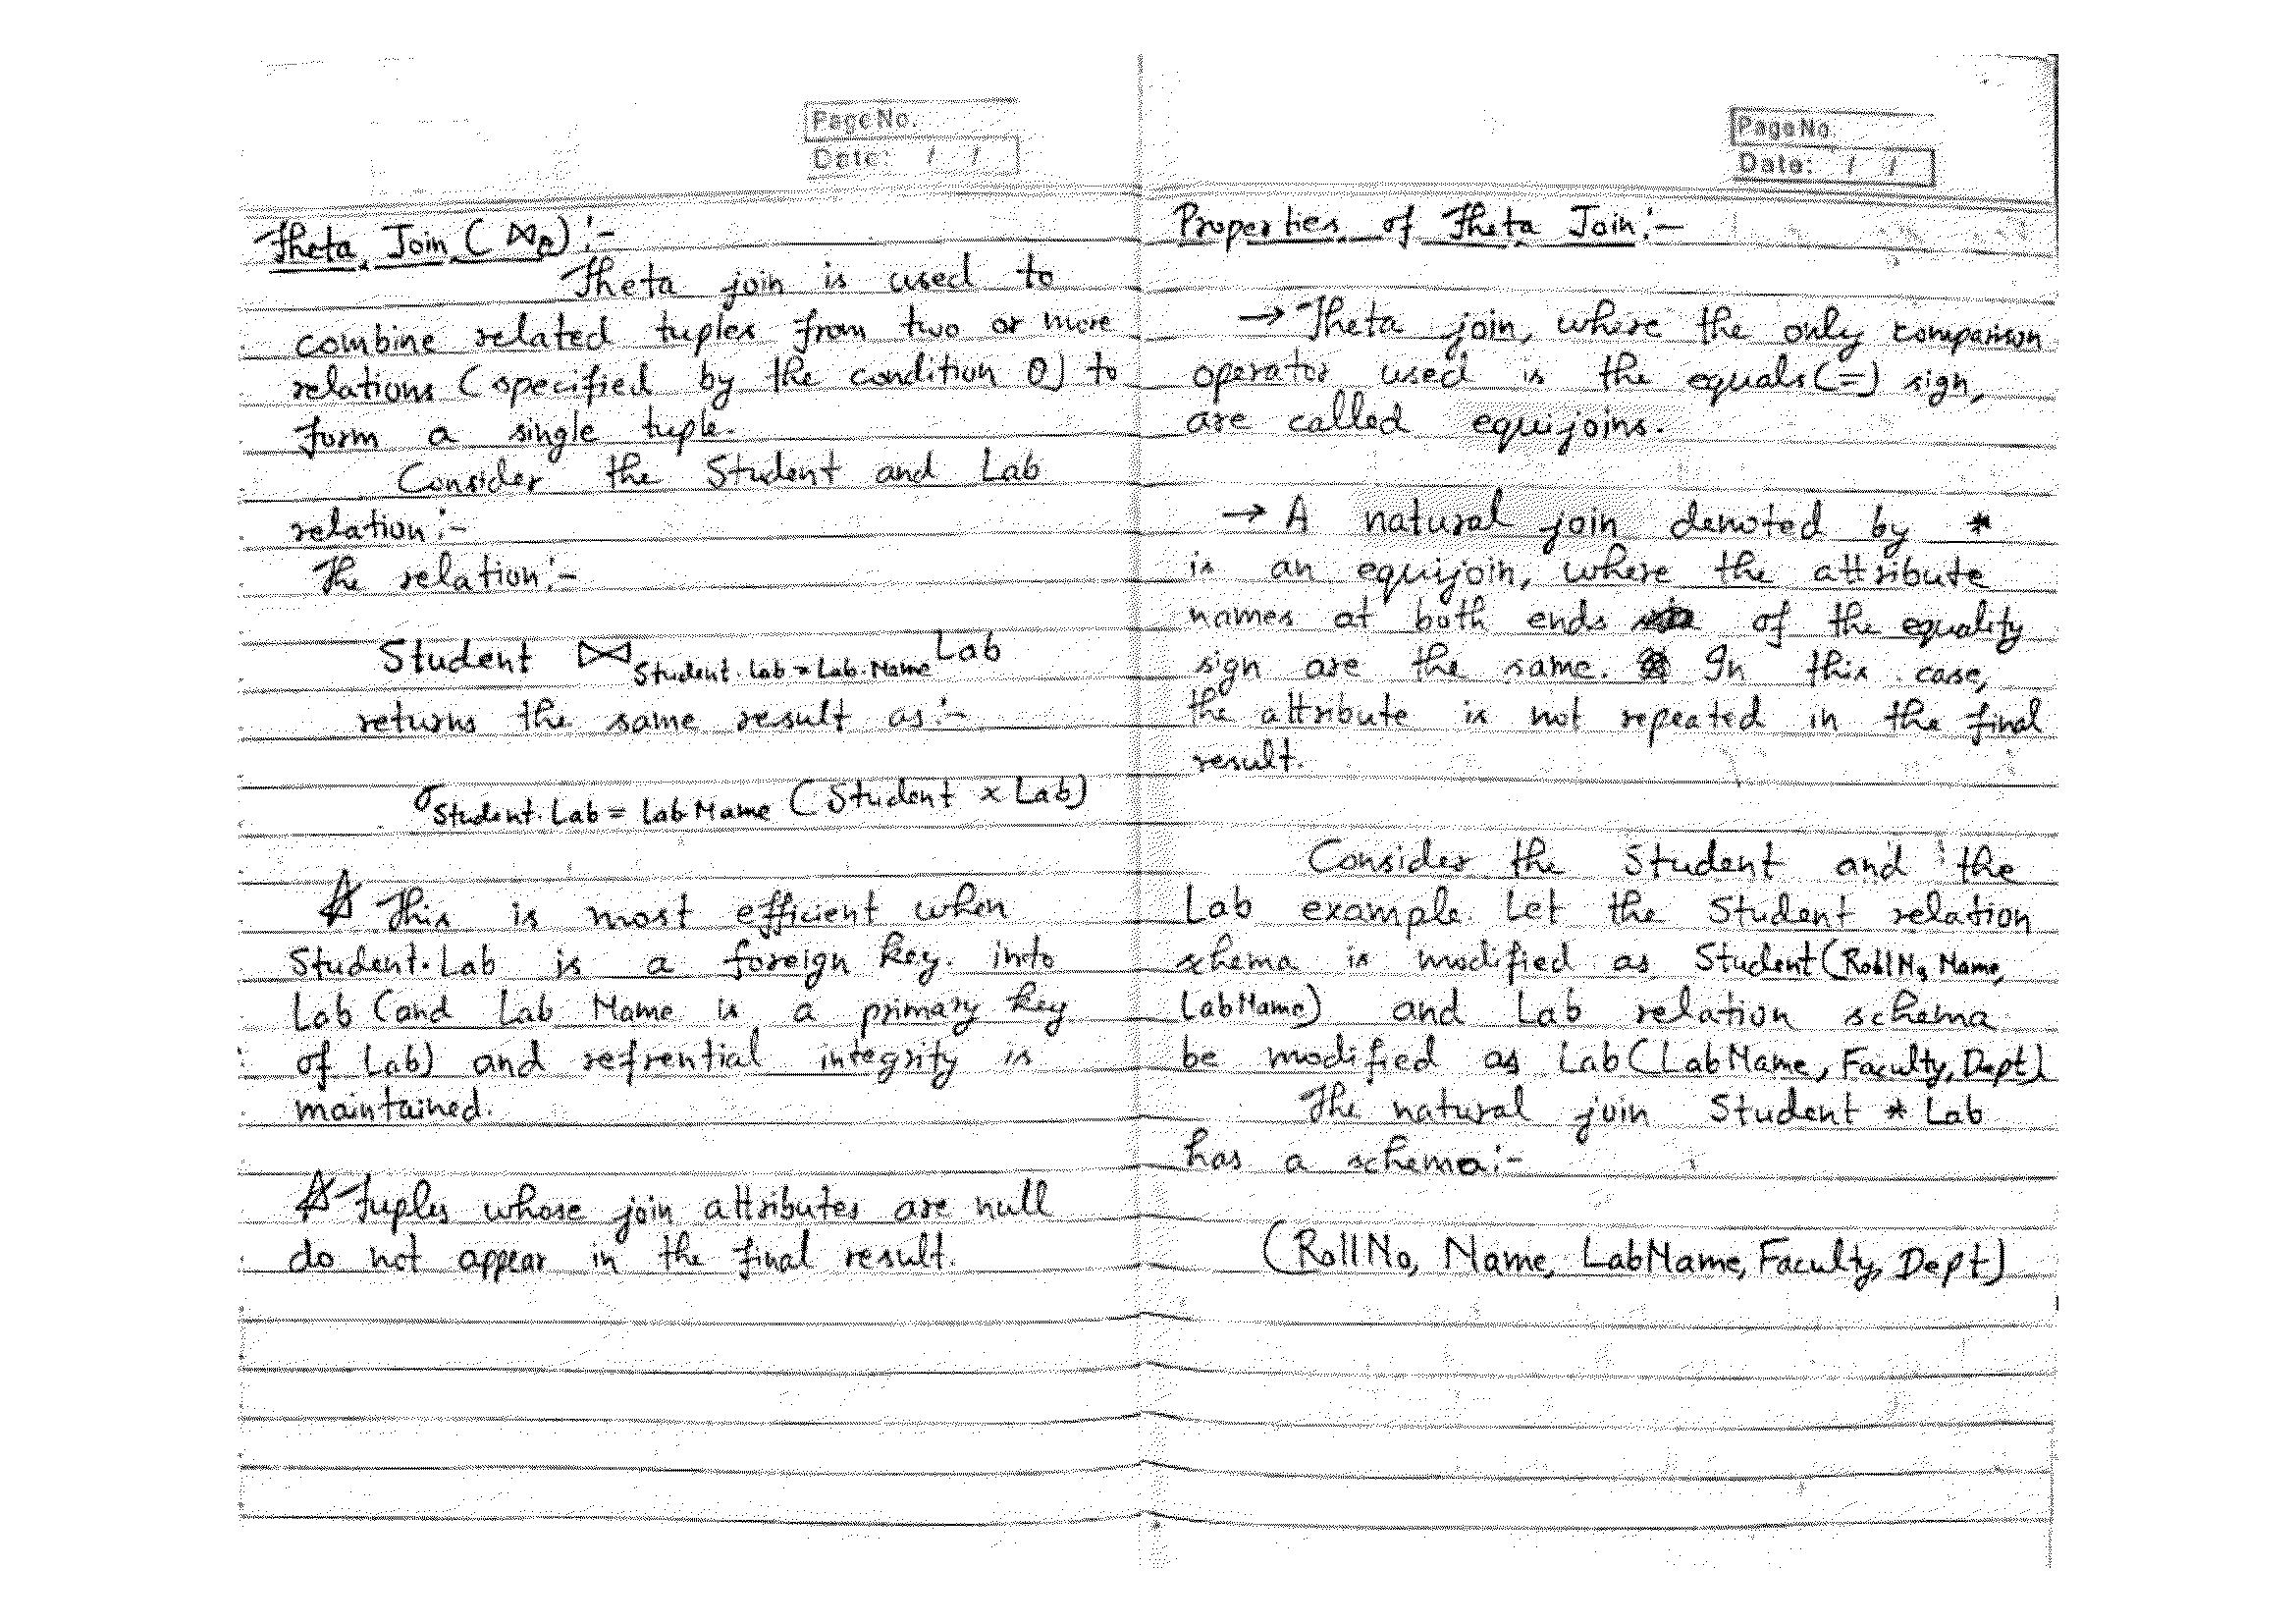 Page No.
Date: / /
Theta Join (⋈θ) :-
Theta join is used to
combine related tuples from two or more
relations (specified by the condition θ) to
form a single tuple.
Consider the Student and Lab
relation:-
The relation:-
Student ⋈ Student.Lab = Lab.Name Lab
returns the same result as:-
σ Student.Lab = Lab.Name (Student x Lab)
☆ This is most efficient when
Student.Lab is a foreign key. into
Lab (and Lab Name is a primary key
of Lab) and refrential integrity is
maintained.
☆ Tuples whose join attributes are null
do not appear in the final result.
Page No.
Date: / /
Properties of Theta Join:-
→ Theta join, where the only comparison
operator used is the equals(=) sign,
are called equijoins.
→ A natural join denoted by *
is an equijoin, where the attribute
names at both ends of the equality
sign are the same. In this case,
the attribute is not repeated in the final
result.
Consider the Student and the
Lab example. Let the Student relation
schema is modified as Student(RollNo, Name,
LabName) and Lab relation schema
be modified as Lab(LabName, Faculty, Dept)
The natural join Student * Lab
has a schema:-
(RollNo, Name, LabName, Faculty, Dept)